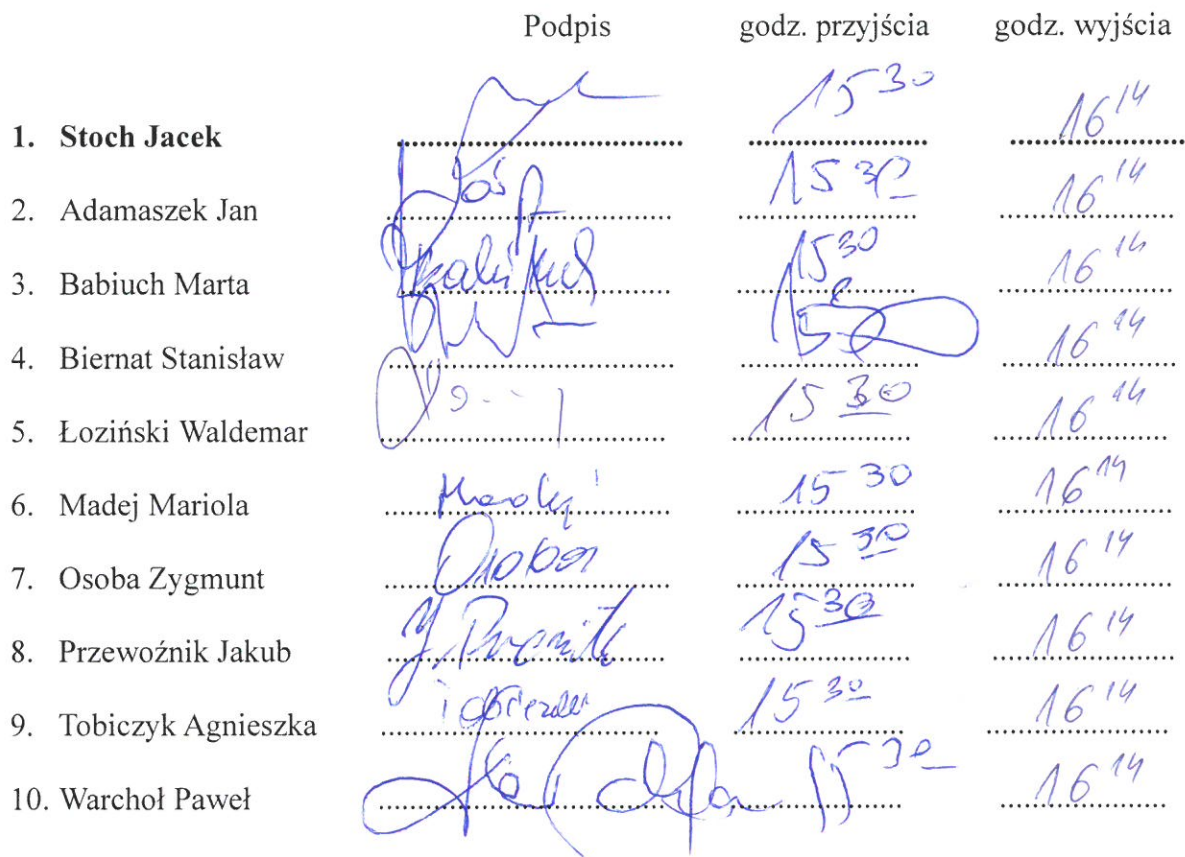 Podpis godz. przyjścia godz. wyjścia
1. Stoch Jacek 15 30 16 14
2. Adamaszek Jan 15 30 16 14
3. Babiuch Marta 15 30 16 14
4. Biernat Stanisław 16 14
5. Łoziński Waldemar 15 30 16 14
6. Madej Mariola 15 30 16 14
7. Osoba Zygmunt Osoba 15 30 16 14
8. Przewoźnik Jakub 15 30 16 14
9. Tobiczyk Agnieszka 15 30 16 14
10. Warchoł Paweł 15 30 16 14